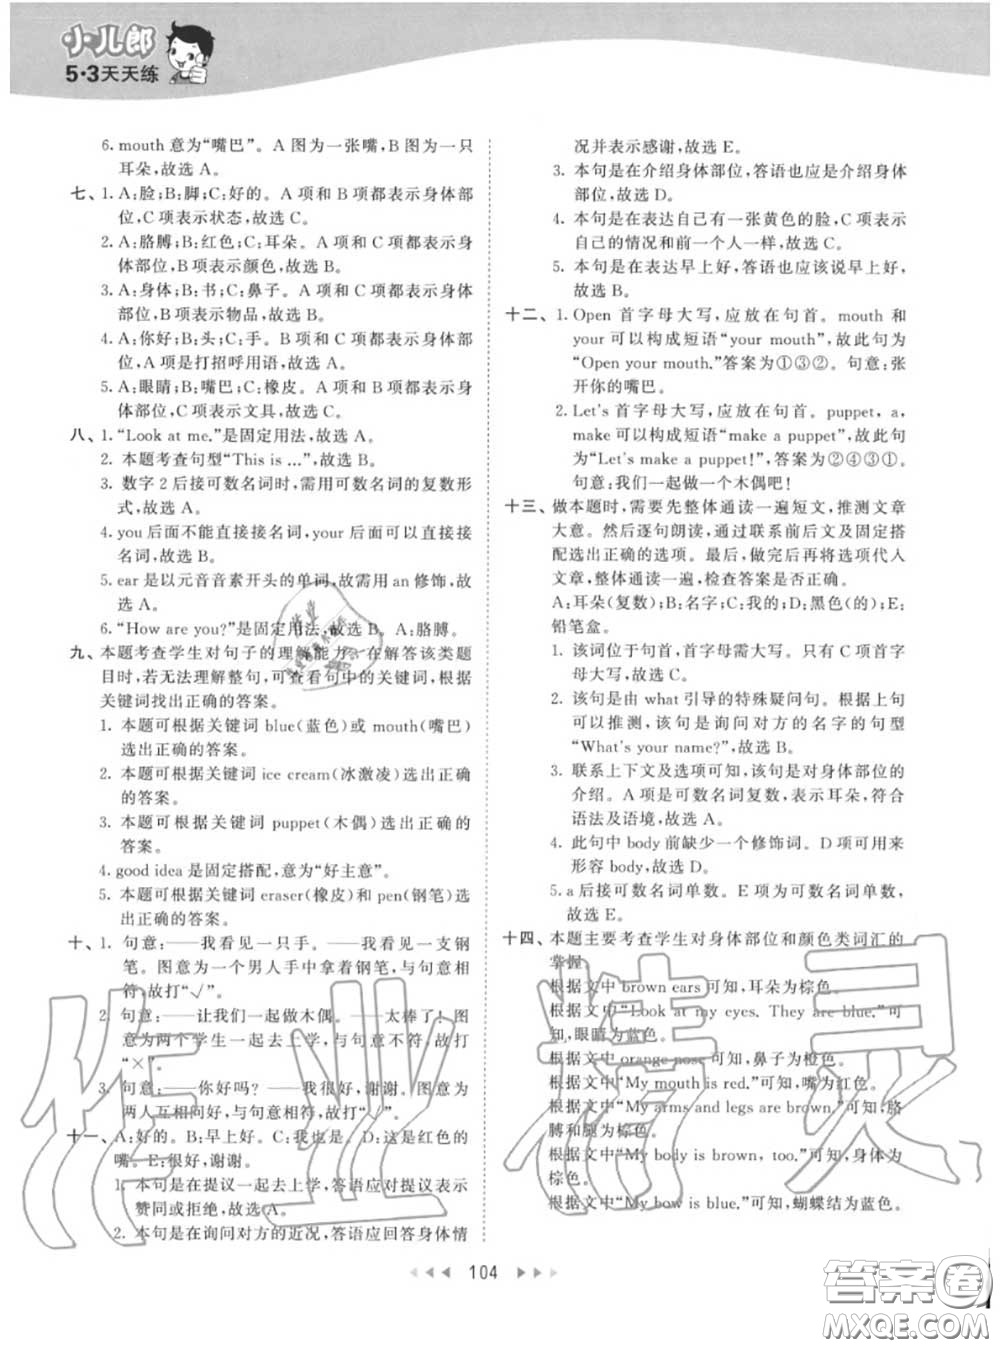 小儿郎
5·3天天练
6. mouth 意为“嘴巴”。A 图为一张嘴,B 图为一只
耳朵,故选 A。
七、1. A:脸;B:脚;C:好的。A 项和 B 项都表示身体部
位,C 项表示状态,故选 C。
2. A:胳膊;B:红色;C:耳朵。A 项和 C 项都表示身
体部位,B 项表示颜色,故选 B。
3. A:身体;B:书;C:鼻子。A 项和 C 项都表示身体
部位,B 项表示物品,故选 B。
4. A:你好;B:头;C:手。B 项和 C 项都表示身体部
位,A 项是打招呼用语,故选 A。
5. A:眼睛;B:嘴巴;C:橡皮。A 项和 B 项都表示身
体部位,C 项表示文具,故选 C。
八、1. “Look at me.”是固定用法,故选 A。
2. 本题考查句型“This is ...”,故选 B。
3. 数字 2 后接可数名词时,需用可数名词的复数形
式,故选 A。
4. you 后面不能直接接名词,your 后面可以直接接
名词,故选 B。
5. ear 是以元音音素开头的单词,故需用 an 修饰,故
选 A。
6. “How are you?”是固定用法,故选 B。A:胳膊。
九、本题考查学生对句子的理解能力。在解答该类题
目时,若无法理解整句,可查看句中的关键词,根据
关键词找出正确的答案。
1. 本题可根据关键词 blue(蓝色)或 mouth(嘴巴)
选出正确的答案。
2. 本题可根据关键词 ice cream(冰激凌)选出正确
的答案。
3. 本题可根据关键词 puppet(木偶)选出正确的
答案。
4. good idea 是固定搭配,意为“好主意”。
5. 本题可根据关键词 eraser(橡皮)和 pen(钢笔)选
出正确的答案。
十、1. 句意:——我看见一只手。——我看见一支钢
笔。图意为一个男人手中拿着钢笔,与句意相
符,故打“√”。
2. 句意:——让我们一起做木偶。——太棒了!图
意为两个学生一起去上学,与句意不符,故打
“×”。
3. 句意:——你好吗?——我很好,谢谢。图意为
两人互相问好,与句意相符,故打“√”。
十一、A:好的。B:早上好。C:我也是。D:这是红色的
嘴。E:很好,谢谢。
1. 本句是在提议一起去上学,答语应对提议表示
赞同或拒绝,故选 A。
2. 本句是在询问对方的近况,答语应回答身体情
况并表示感谢,故选 E。
3. 本句是在介绍身体部位,答语也应是介绍身体
部位,故选 D。
4. 本句是在表达自己有一张黄色的脸,C 项表示
自己的情况和前一个人一样,故选 C。
5. 本句是在表达早上好,答语也应该说早上好,
故选 B。
十二、1. Open 首字母大写,应放在句首。mouth 和
your 可以构成短语“your mouth”,故此句为
“Open your mouth.”答案为①③②。句意:张
开你的嘴巴。
2. Let's 首字母大写,应放在句首。puppet, a,
make 可以构成短语“make a puppet”,故此句
为“Let's make a puppet!”,答案为②④③①。
句意:我们一起做一个木偶吧!
十三、做本题时,需要先整体通读一遍短文,推测文章
大意。然后逐句朗读,通过联系前后文及固定搭
配选出正确的选项。最后,做完后再将选项代入
文章,整体通读一遍,检查答案是否正确。
A:耳朵(复数);B:名字;C:我的;D:黑色(的);E:
铅笔盒。
1. 该词位于句首,首字母需大写。只有 C 项首字
母大写,故选 C。
2. 该句是由 what 引导的特殊疑问句。根据上句
可以推测,该句是询问对方的名字的句型
“What's your name?”,故选 B。
3. 联系上下文及选项可知,该句是对身体部位的
介绍。A 项是可数名词复数,表示耳朵,符合
语法及语境,故选 A。
4. 此句中 body 前缺少一个修饰词。D 项可用来
形容 body,故选 D。
5. a 后接可数名词单数。E 项为可数名词单数,
故选 E。
十四、本题主要考查学生对身体部位和颜色类词汇的
掌握。
根据文中 brown ears 可知,耳朵为棕色。
根据文中“Look at my eyes. They are blue.”可
知,眼睛为蓝色。
根据文中 orange nose 可知,鼻子为橙色。
根据文中“My mouth is red.”可知,嘴为红色。
根据文中“My arms and legs are brown.”可知,胳
膊和腿为棕色。
根据文中“My body is brown, too.”可知,身体为
棕色。
根据文中“My bow is blue.”可知,蝴蝶结为蓝色。
作业精灵
104
答案圈
MXQE.COM